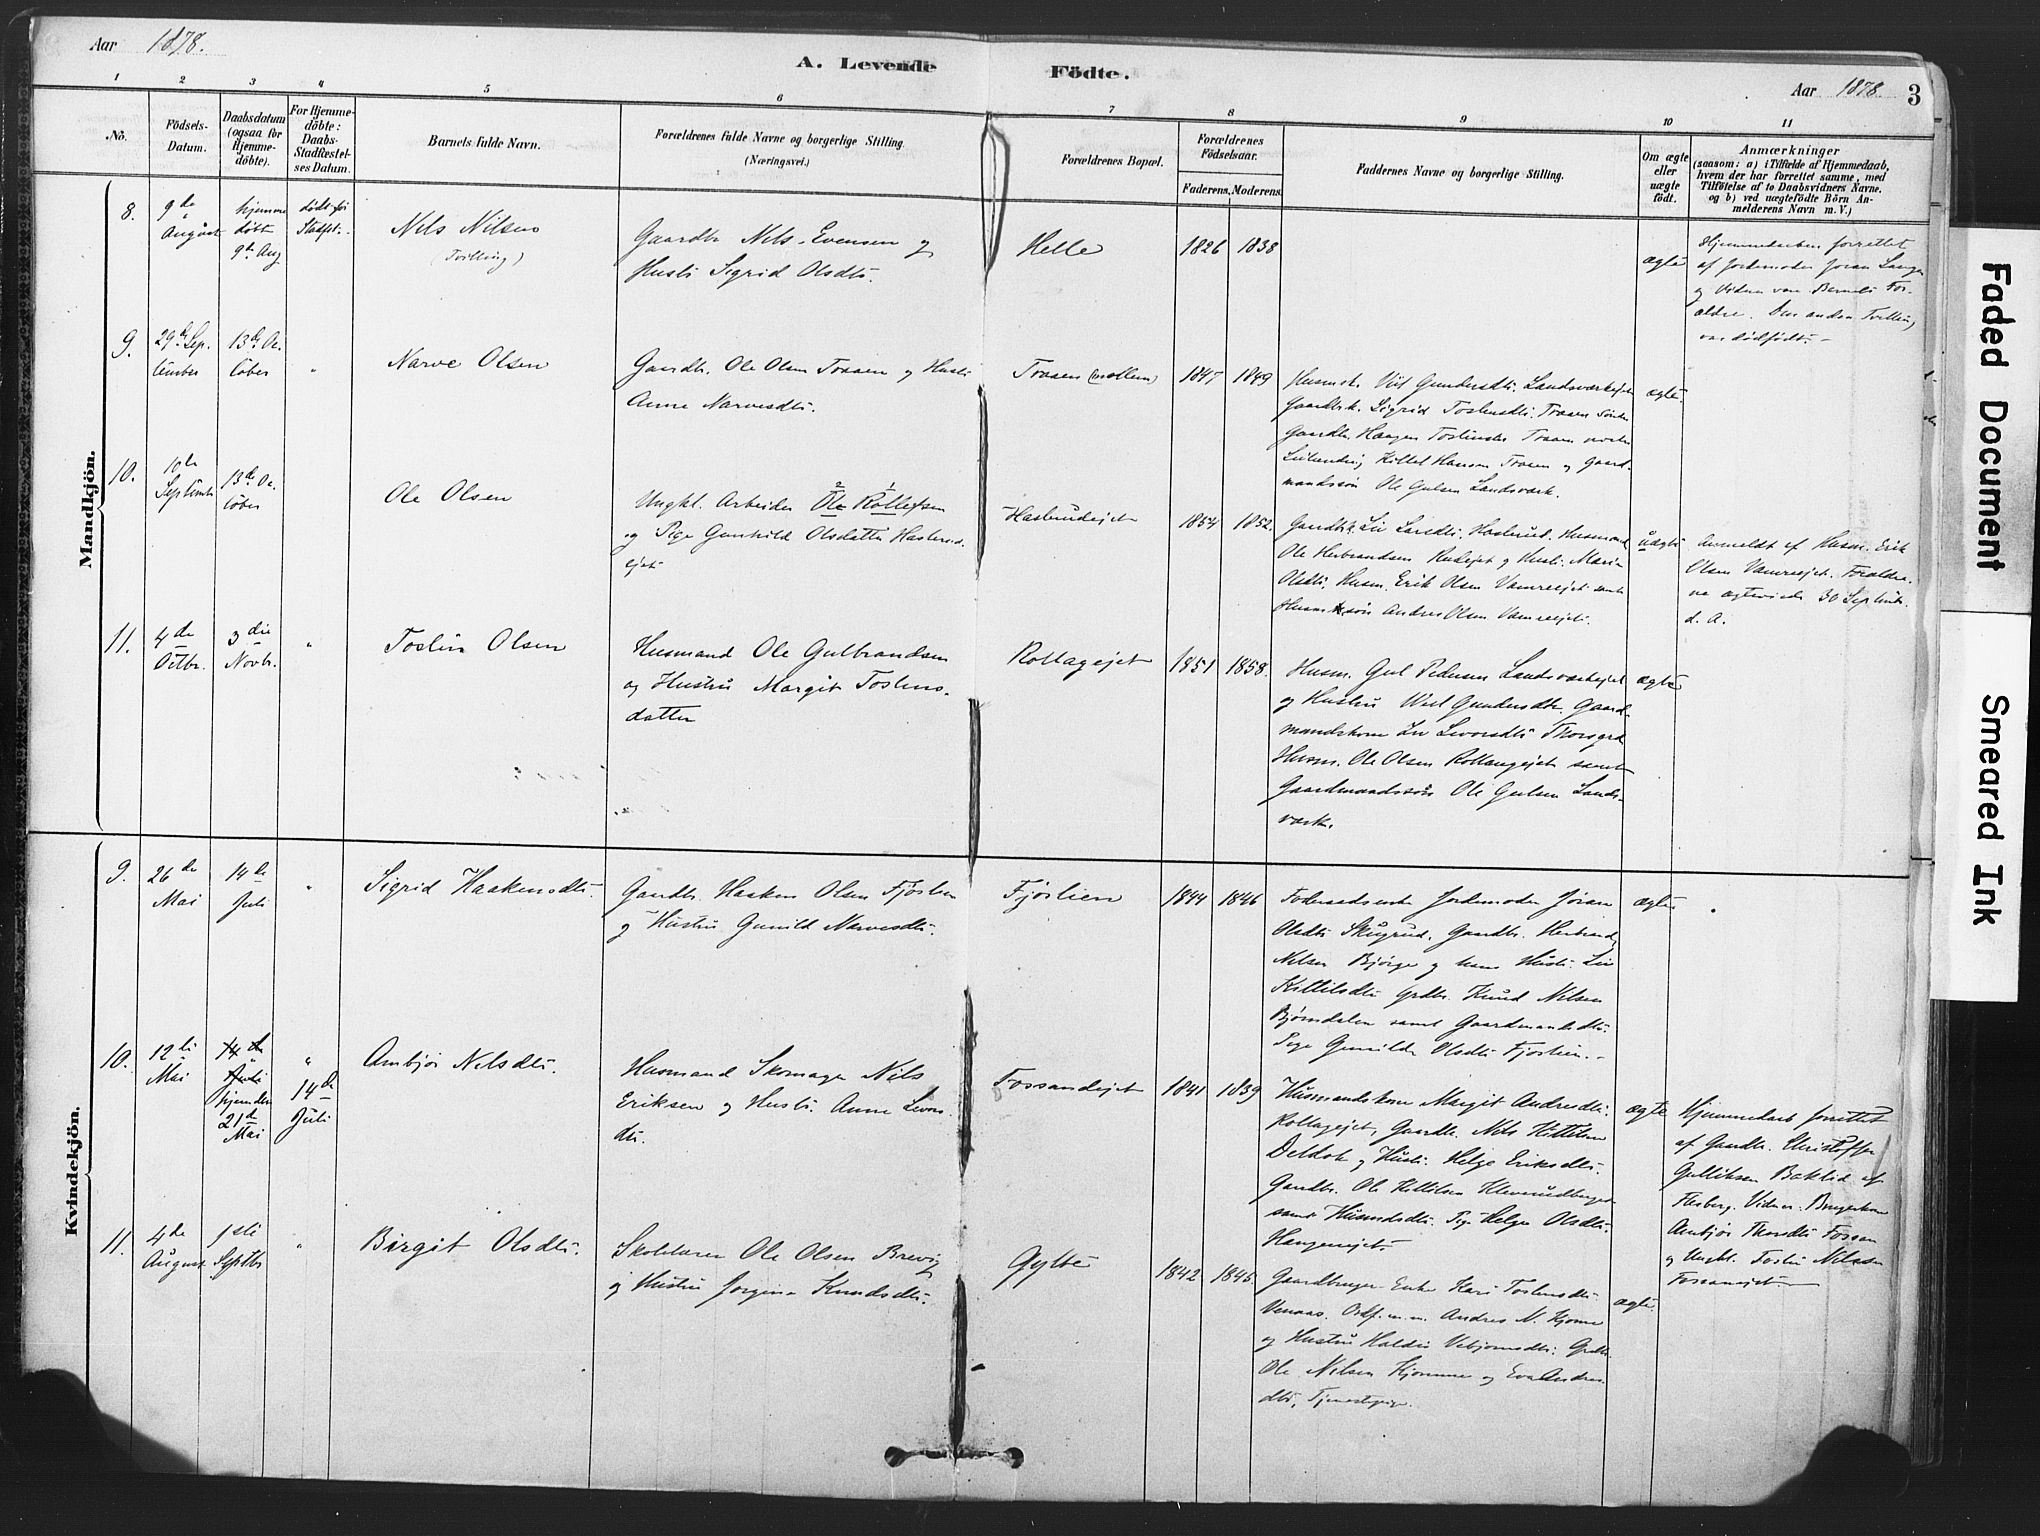 Aar 1878.
A. Levende Födte.
Aar 1878. 3
1 2 3 4 5 6 7 8 9 10 11
No.
Födsels-
Datum.
Daabsdatum
(ogsaa for
Hjemme-
döbte).
For Hjemme-
döbte:
Daabs-
Stadfæstel-
ses Datum.
Barnets fulde Navn.
Forældrenes fulde Navne og borgerlige Stilling.
(Næringsvei.)
Forældrenes Bopæl.
Forældrenes
Födselsaar.
Faderens. Moderens.
Faddernes Navne og borgerlige Stilling.
Om ægte
eller
uægte
födt.
Anmærkninger
(saasom: a) i Tilfælde af Hjemmedaab,
hvem der har forrettet samme, med
Tilföielse af to Daabsvidners Navne.
og b) ved uægtefödte Börn An-
melderens Navn m. V.)
Mandkjön.
8.
9de
August
hjemme
döbt
9de Aug
död för
Stadfst.
Nels Nilsen
(Tvilling)
Gaardbr. Nels Evensen og
Hustr. Sigrid Olsdtr.
Helle
1826 1838
ægte
Hjemmedaaben forrettet
af Jordemoder Joran
og Vidner var Barnets For-
ældre. Den anden Tvilling
var dödfödt.
9.
29de Sep-
tember
13de Oc-
tober
"
Narve Olsen
Gaardbr. Ole Olsen Traaen og Hustr.
Anne Narvesdtr.
Traaen (mellem)
1847 1849
Husmk. Gundersdtr. Landsværkejet
Gaardbrk. Sigrid Toslensdtr. Traaen
Gaardbr. Haagen Traaen
Kittel Hansen Traaen og Gaard-
mandssön Ole Gulsen Landsværk.
ægte
10.
10de
Septembr
13de Oc-
tober
Ole Olsen
Ungkl. Arbeider Ole Rollefsen
og Pige Gunhild Olsdatter Haslerud-
ejet
Haslerudejet
1854 1852.
Gaardbrk. Liv Larsdtr. Haslerud. Husmand
Ole Herbrandsen og Hustr. Mari
Olsdtr. Husm. Erik Olsen Vamresejet samt
Husm.sön Andres Olsen Vamresejet.
uægte
Anmeldt af Husm. Erik
Olsen Vamresejet. Forældre-
ne ægteviede 30 Septmbr.
d. A.
11.
4de
Octbr.
3die
Novbr.
"
Toslein Olsen
Husmand Ole Gulbrandsen
og Hustru Margit Toslens-
datter
Rollagejet
1851 1858.
Husm. Gul Pedersen Landsværkejet
og Hustru Gundersdtr. Gaard-
mandskone Liv Levorsdtr. Thorsgrd
Husm. Ole Olsen Rollagejet samt
Gaardmandssön Ole Gulsen Lands-
værk.
ægte
Kvindekjön.
9.
26de
Mai
14de
Juli
"
Sigrid Haakensdtr.
Gaardbr. Haaken Olsen Fjöslien
og Hustru Gunild Narvesdtr.
Fjöslien
1844 1846
Jordemoder Jöran
Olsdtr Skügrud. Gaardbr. Herbrand
Nilsen Björge og hans Hustr. Liv
Kittilsdtr Grdbr. Knud Nilsen
Björndalen samt Gaardmandsdtr.
Pige Gunild Olsdtr Fjöslien.
ægte
10.
12te
Mai
14de
Juli
hjemdöbt
21de
Mai
"
14de
Juli
Ambjör Nilsdtr.
Husmand Skomager Nils
Eriksen og Hustr. Anne Levors-
dtr.
Fossanejet
1841 1839
Husmandskone Margit Andresdtr.
Rollagejet, Gaardbr. Nels Kittelsen
Deldok og Hustr. Helge Eriksdtr.
Gaardbr. Ole Kittilsen Kleverudberget
samt Husmdsdtr. Pige Helge Olsdtr.
Haugenejet.
ægte
Hjemmedaab forrettet
af Gaardbr. Christoffer
Gulliksen Baklid af
Flesberg. Vidner Brugerkone
Ambjör Thorsdtr Fossan
og Ungkl. Nilsen
Fossanejet.
11.
4de
August
1ste
Septbr
"
Birgit Olsdtr.
Skolelærer Ole Olsen Brevig
og Hustru Jorgine Knudsdtr.
Gylte
1842 1845
Gaardbruger Enke Kari Toslensdtr.
Venaas. Andres N. Kjome
og Hustru Haldis Vebjornsdtr. Grdbr.
Ole Nilsen Kjomme og Eva Andres-
dtr, Tjenestepige.
ægte
Faded Document
Smeared Ink